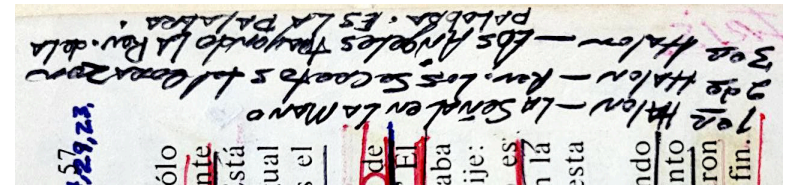 1er HALON – LA SEÑAL EN LA MANO
2do HALON – Rev. LOS SeCReTOS del CORAZON
3er HALON – LOS ANGELES TRAYENDO LA Rev. de la
PALABRA. ES LA PALABRA.
57
29,23,
ólo
nte
stá
ual
s el
de
El
aba
ije:
es
n la
esta
ndo
nto
ron
fin.